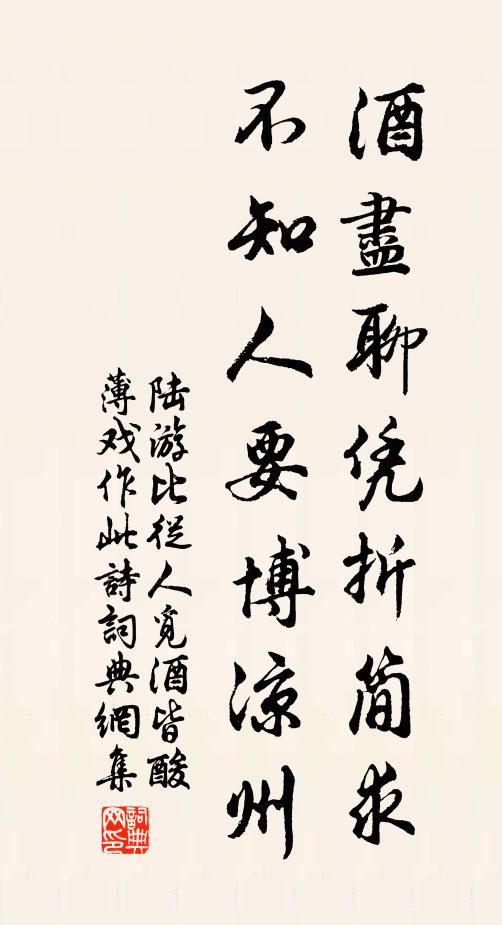 酒盡聊凭折简求
不知人要博凉州
陆游比從人覓酒皆酸
薄戏作此詩詞典網集
詞典
网印